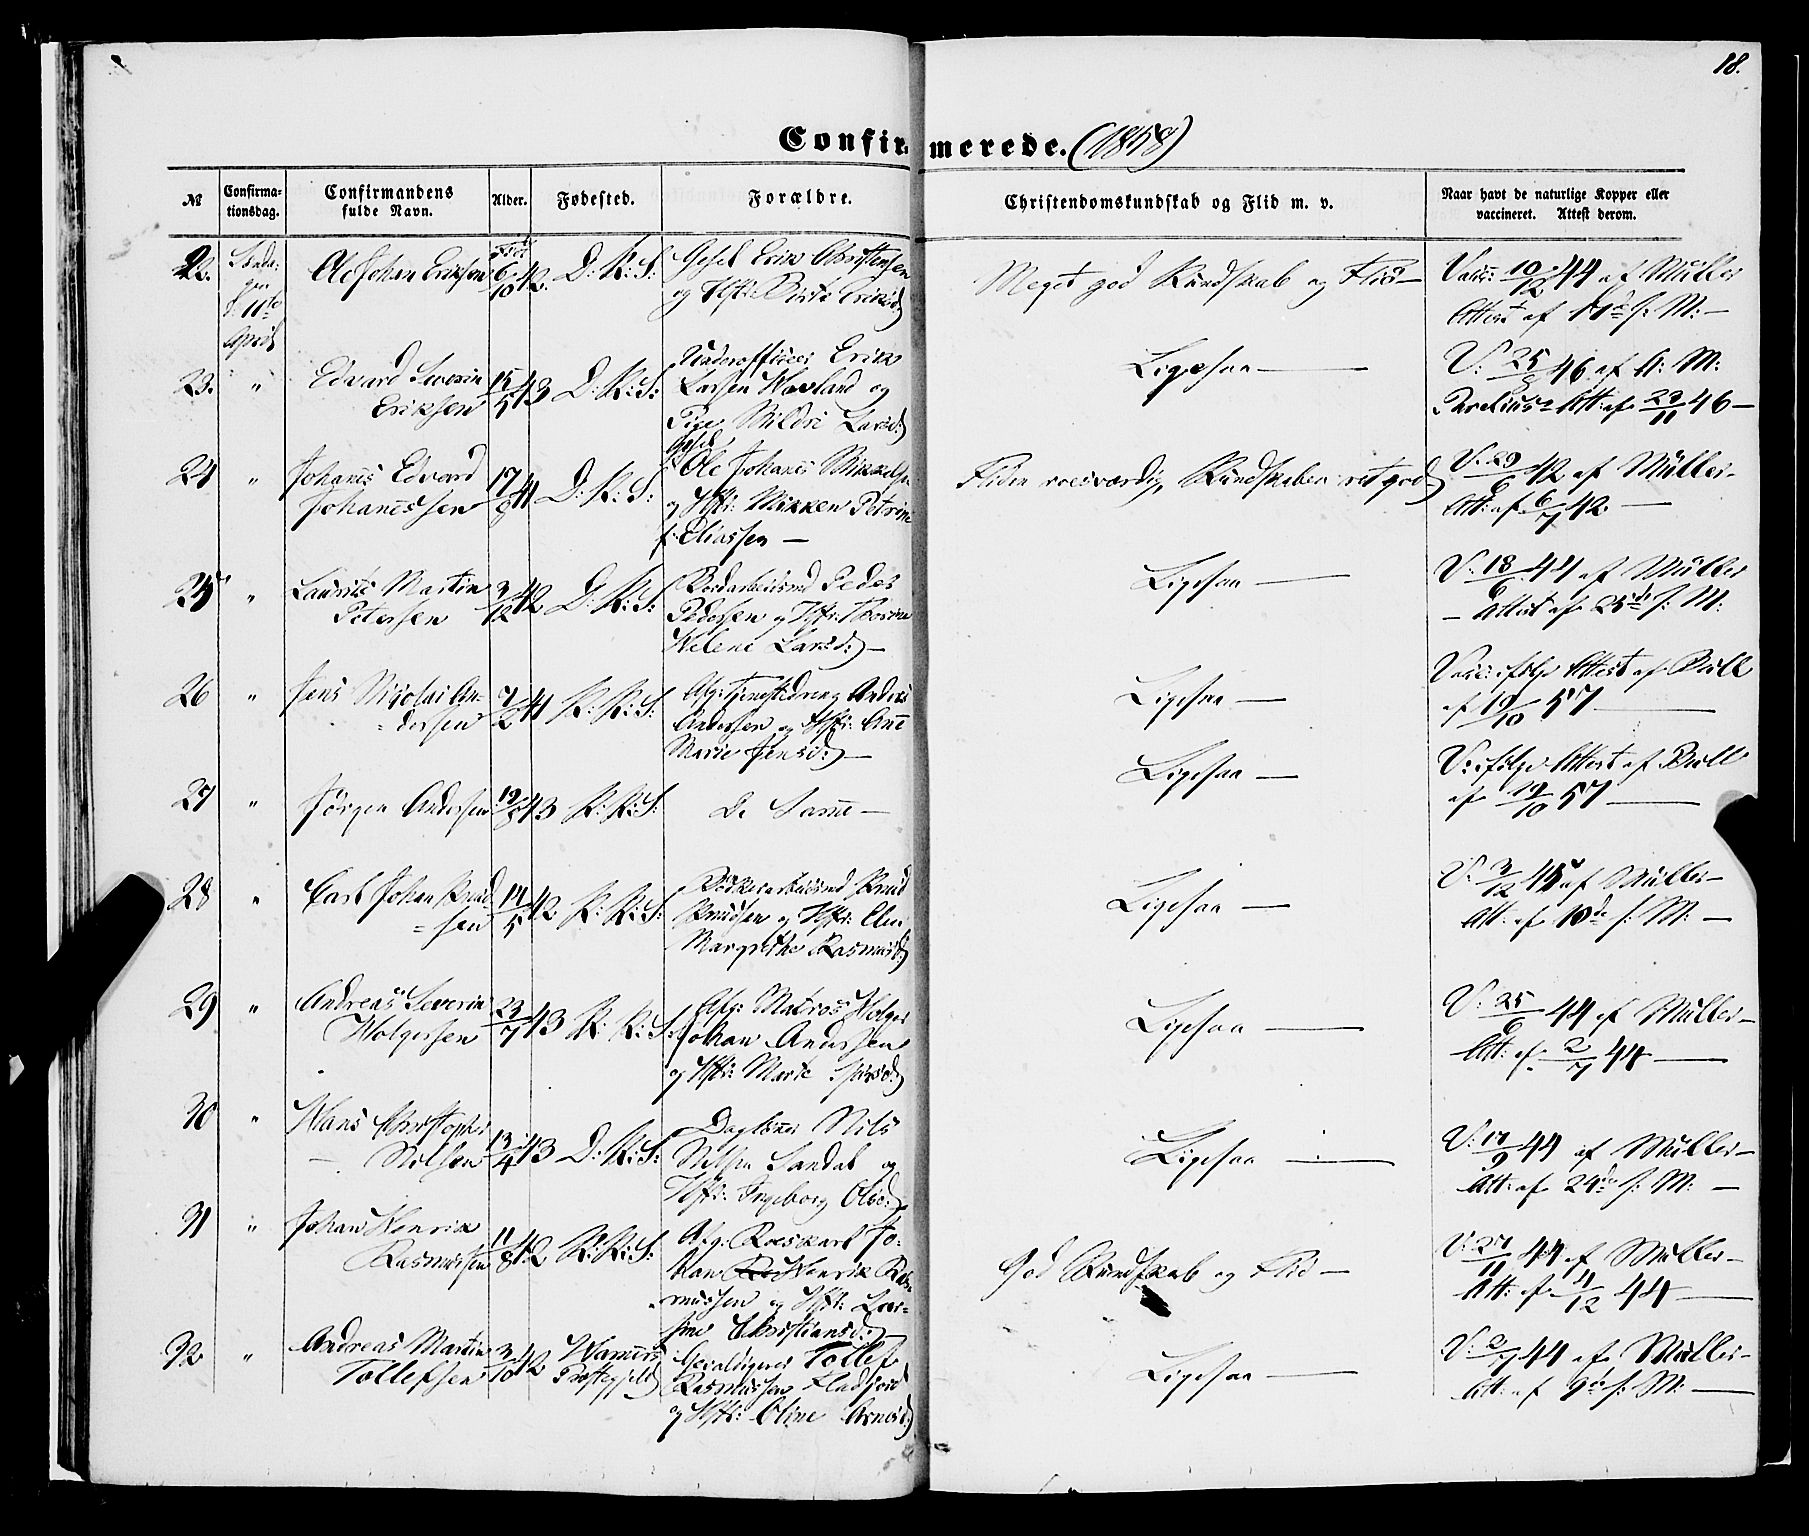 18.
Confirmerede. (1858)
№
Confirma-
tionsdag.
Confirmandens
fulde Navn.
Alder.
Fødested.
Forældre.
Christendomskundskab og Flid m. v.
Naar havt de naturlige Kopper eller
vaccineret. Attest derom.
22.
Sønda-
gen
d: 11te
April
Ole Johan Eriksen
Født
6/10 42.
D: K: S:
Gesel Erik Christensen
og Hst: Berte Eriksd:
Meget god Kundskab og Flid —
Vacc: 10/12 44 af Müller
Attest af s: M: —
23. "
Edvard Severin
Eriksen
15/5 43
D: K: S:
Underofficeer Erik
Larsen Havland og
Pige Mildri Larsd:
Ligesaa —
V: 25/8 46 af A: M:
Att: af 28/11 46 —
24 "
Johannes Edvard
Johannessen
17/8 41
D: K: S:
Gesel
Ole Johannes Mikkels
og Hst: Mikken Petrine
f: Eliassen —
Fliden roesværdig, Kundskaben ret god
V: 29/6 42 af Müller —
Att: af 6/7 42. —
25 "
Laurits Martin
Petersen
3/12 42
D: K: S:
Peder
Pedersen og Hst: Thorine
Helene Larsd: —
Ligesaa —
V: 18/6 44 af Müller
— Attest af 25de s: M:
26 "
Jens Nicolai An-
=dersen
7/2 41
K: K: S:
Afg: Anders
Andersen og Hst: Anne
Marie Jensd: —
Ligesaa —
Vacc: ifølge Attest af Bull
af 19/10 57 —
27 "
Jørgen Andersen
19/8 43
K: K: S:
De Samme —
Ligesaa —
V: ifølge Attest af Bull
af 19/10 57 —
28 "
Carl Johan Knud
=sen
14/5 42
K: K: S:
Bødkerarbeidsmd Knud
Knudsen og Hst: Elen
Margrethe Rasmusd:
Ligesaa —
V: 3/12 45 af Müller —
Att: af 10de s: M: —
29 "
Andreas Severin
Holgersen
23/7 43
K: K: S:
Afg: Matros Holger
Johan Andersen
og Hst: Marte
Ligesaa —
V: 25/6 44 af Müller —
Att: af 2/7 44 —
30 "
Hans Christopher
Nilsen
13/4 43
D: K: S:
Daglønner Nils
Nilsen Sandal og
Hst: Ingeborg Olsd:
Ligesaa —
V: 17/9 44 af Müller —
Att: af 24de s: M: —
31 "
Johan Henrik
Rasmussen
11/8 42
K: K: S:
Afg: Roeskarl Jo-
han Henrik Ras-
mussen og Hst: Lovi-
sine Christiansd: —
God Kundskab og Flid —
V: 27/11 44 af Müller —
Att: af 4/12 44 —
32 "
Andreas Martin
Tollefsen
3/10 42
Hammers
Præstegjeld
Tollef
Rasmussen
og Hst: Oline Arnesd:
Ligesaa —
V: 2/7 44 af Müller —
Att: af 9de s: M: —